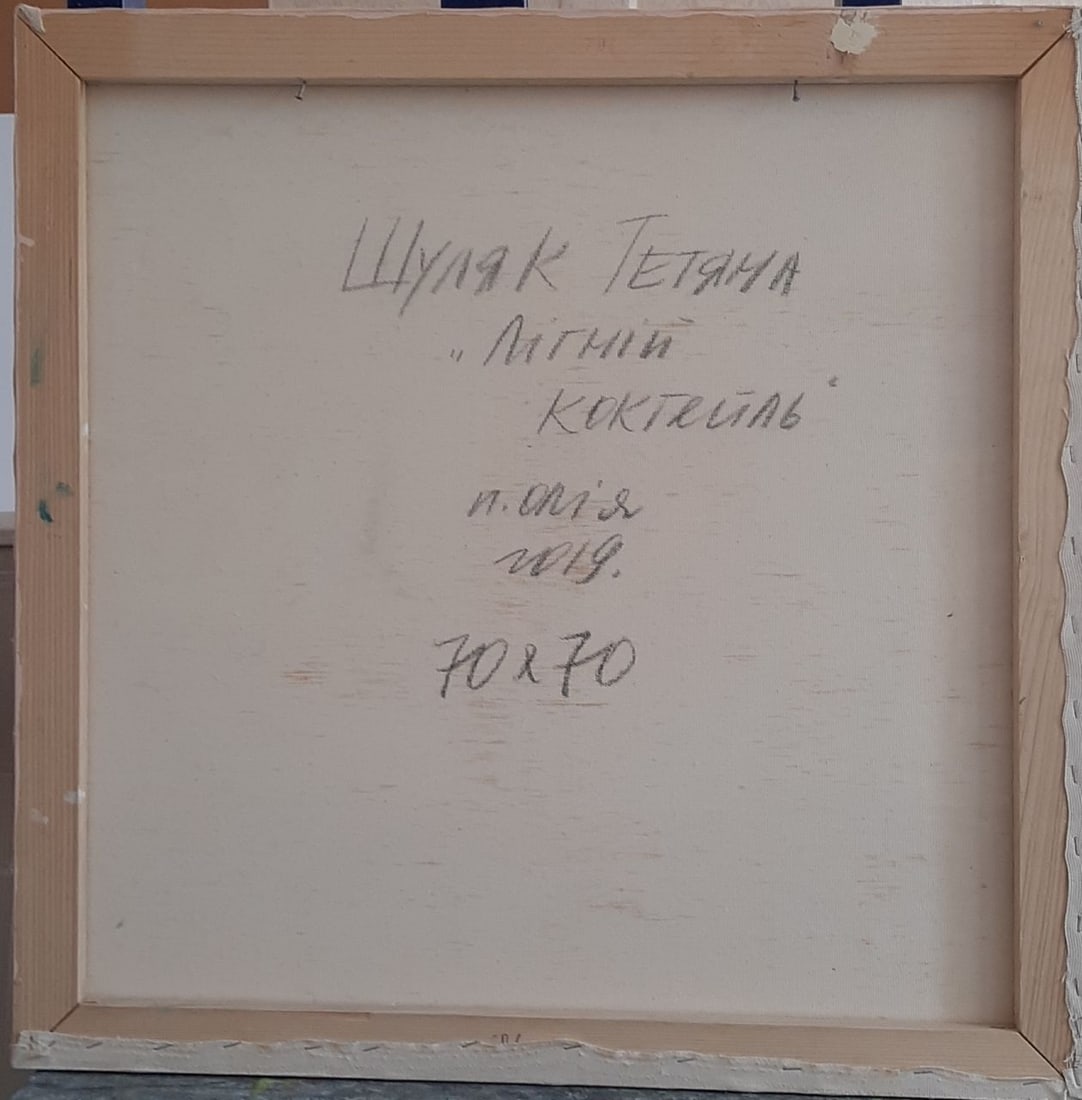 Шуляк Тетяна
„Літній
коктейль"
п. олія
2019.
70x70